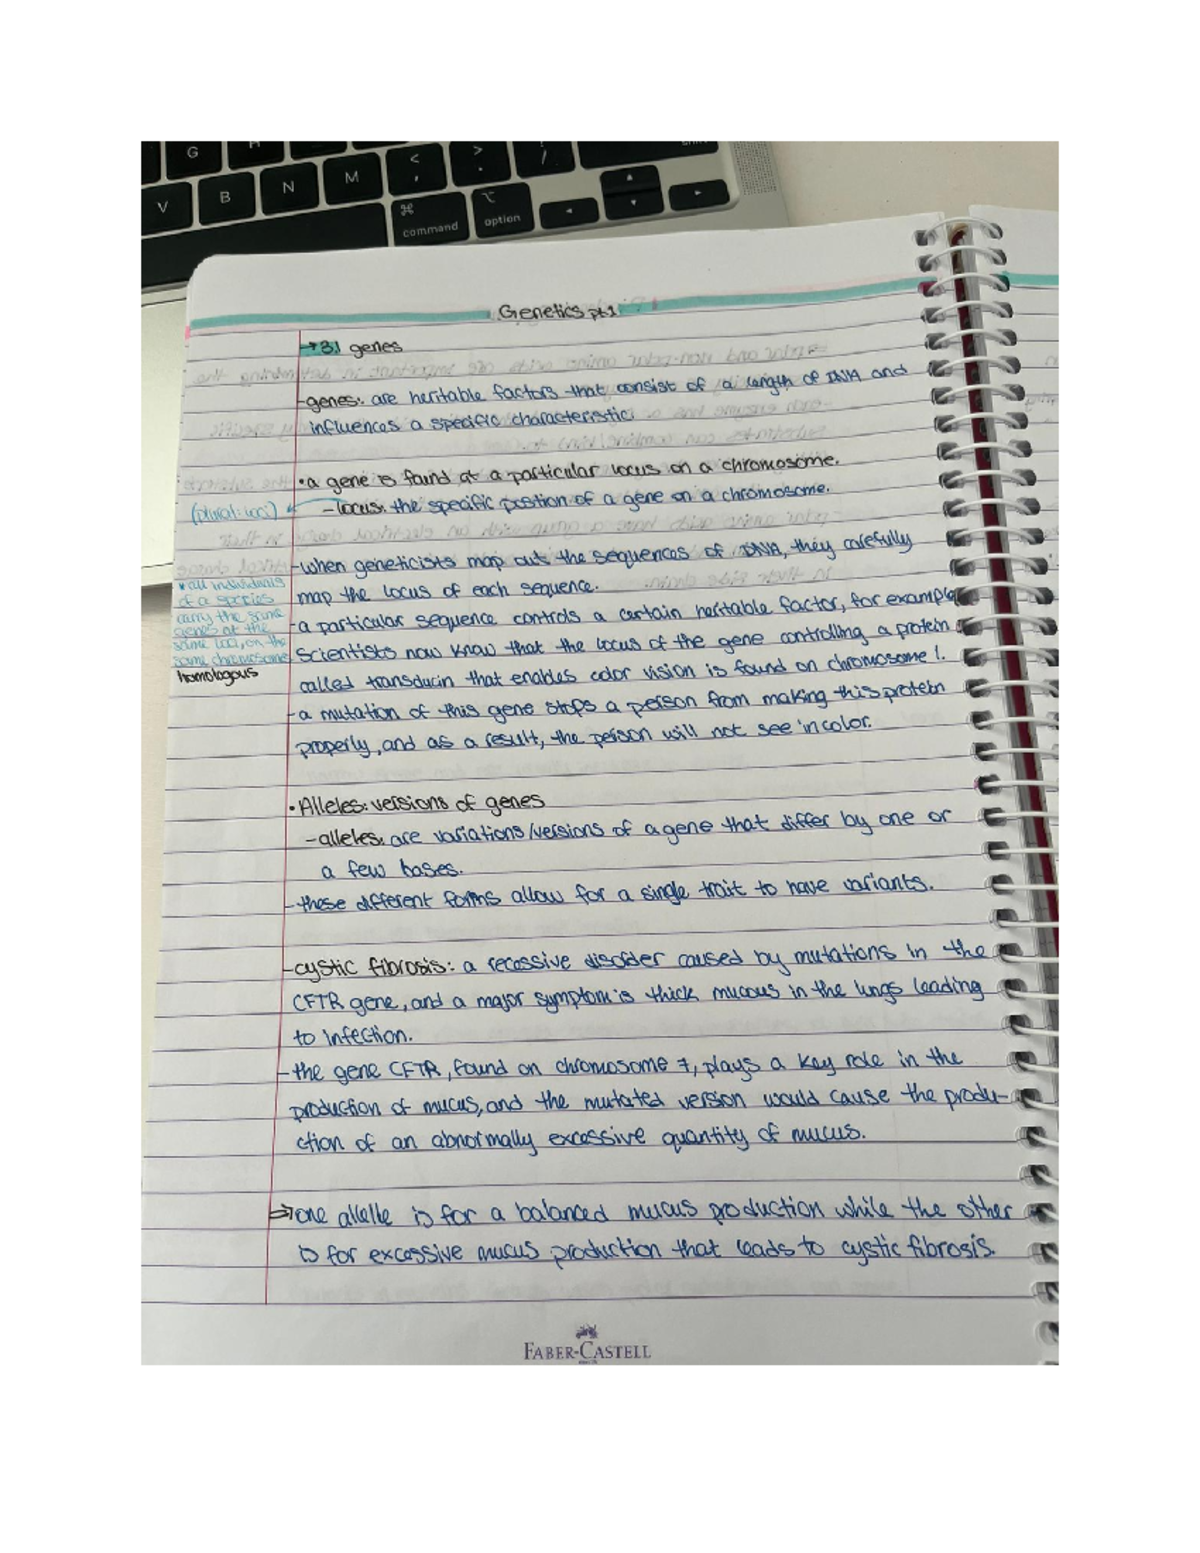 G
H
<
,
>
.
/
V
B
N
M
⌘
command
⌥
option
Genetics pt.1
→3.1 genes
-genes: are heritable factors that consist of a length of DNA and
influences a specific characteristic
•a gene is found at a particular locus on a chromosome.
-locus: the specific position of a gene on a chromosome.
(plural: loci)
-when geneticists map out the sequences of DNA, they carefully
map the locus of each sequence.
*all individuals
of a species
carry the same
genes at the
same loci, on the
same chromosome
homologous
-a particular sequence controls a certain heritable factor, for example
scientists now know that the locus of the gene controlling a protein
called transducin that enables color vision is found on chromosome 1.
-a mutation of this gene stops a person from making this protein
properly, and as a result, the person will not see in color.
•Alleles: versions of genes
-alleles: are variations/versions of a gene that differ by one or
a few bases.
-these different forms allow for a single trait to have variants.
-cystic fibrosis: a recessive disorder caused by mutations in the
CFTR gene, and a major symptom is thick mucous in the lungs leading
to infection.
-the gene CFTR, found on chromosome 7, plays a key role in the
production of mucus, and the mutated version would cause the produ-
ction of an abnormally excessive quantity of mucus.
⇒one allelle is for a balanced mucus production while the other
is for excessive mucus production that leads to cystic fibrosis.
FABER-CASTELL